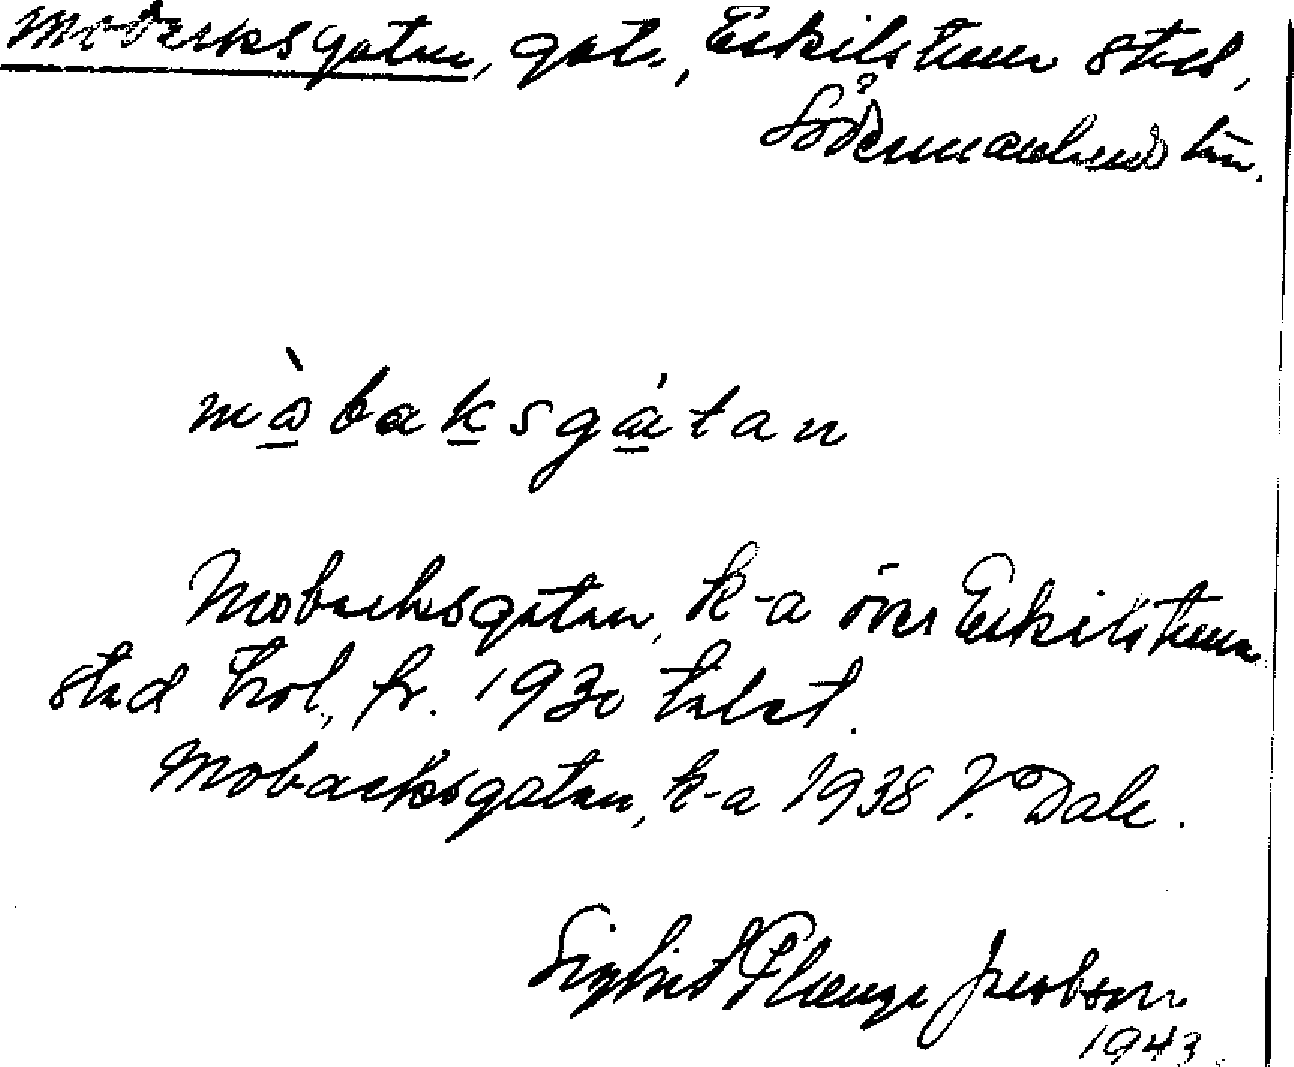 Mobacksgatan, gata, Eskilstuna stad,
Södermanlands län.
mòbaksgátan
Mobacksgatan, k-a över Eskilstuna
stad trol. fr. 1930 talet.
Mobacksgatan, k-a 1938 V. Dale.
Sigfrid Plange Jacobson
1943.